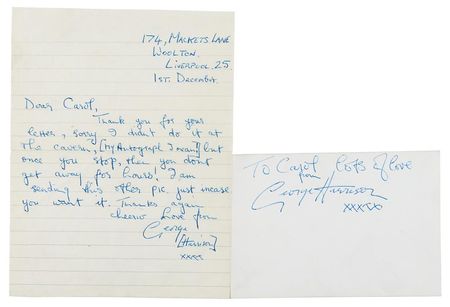 174, MACKETS LANE
WOOLTON.
LIVERPOOL. 25.
1ST. DECEMBER.
Dear Carol,
Thank you for your
letter, sorry I didn't do it at
the cavern, [My Autograph I mean] but
once you stop, then you don't
get away for hours! I am
sending this other pic. just incase
you want it. Thanks again
cheerio Love from
George
[Harrison]
xxxx
To Carol lots of love
from
George Harrison
xxxxx